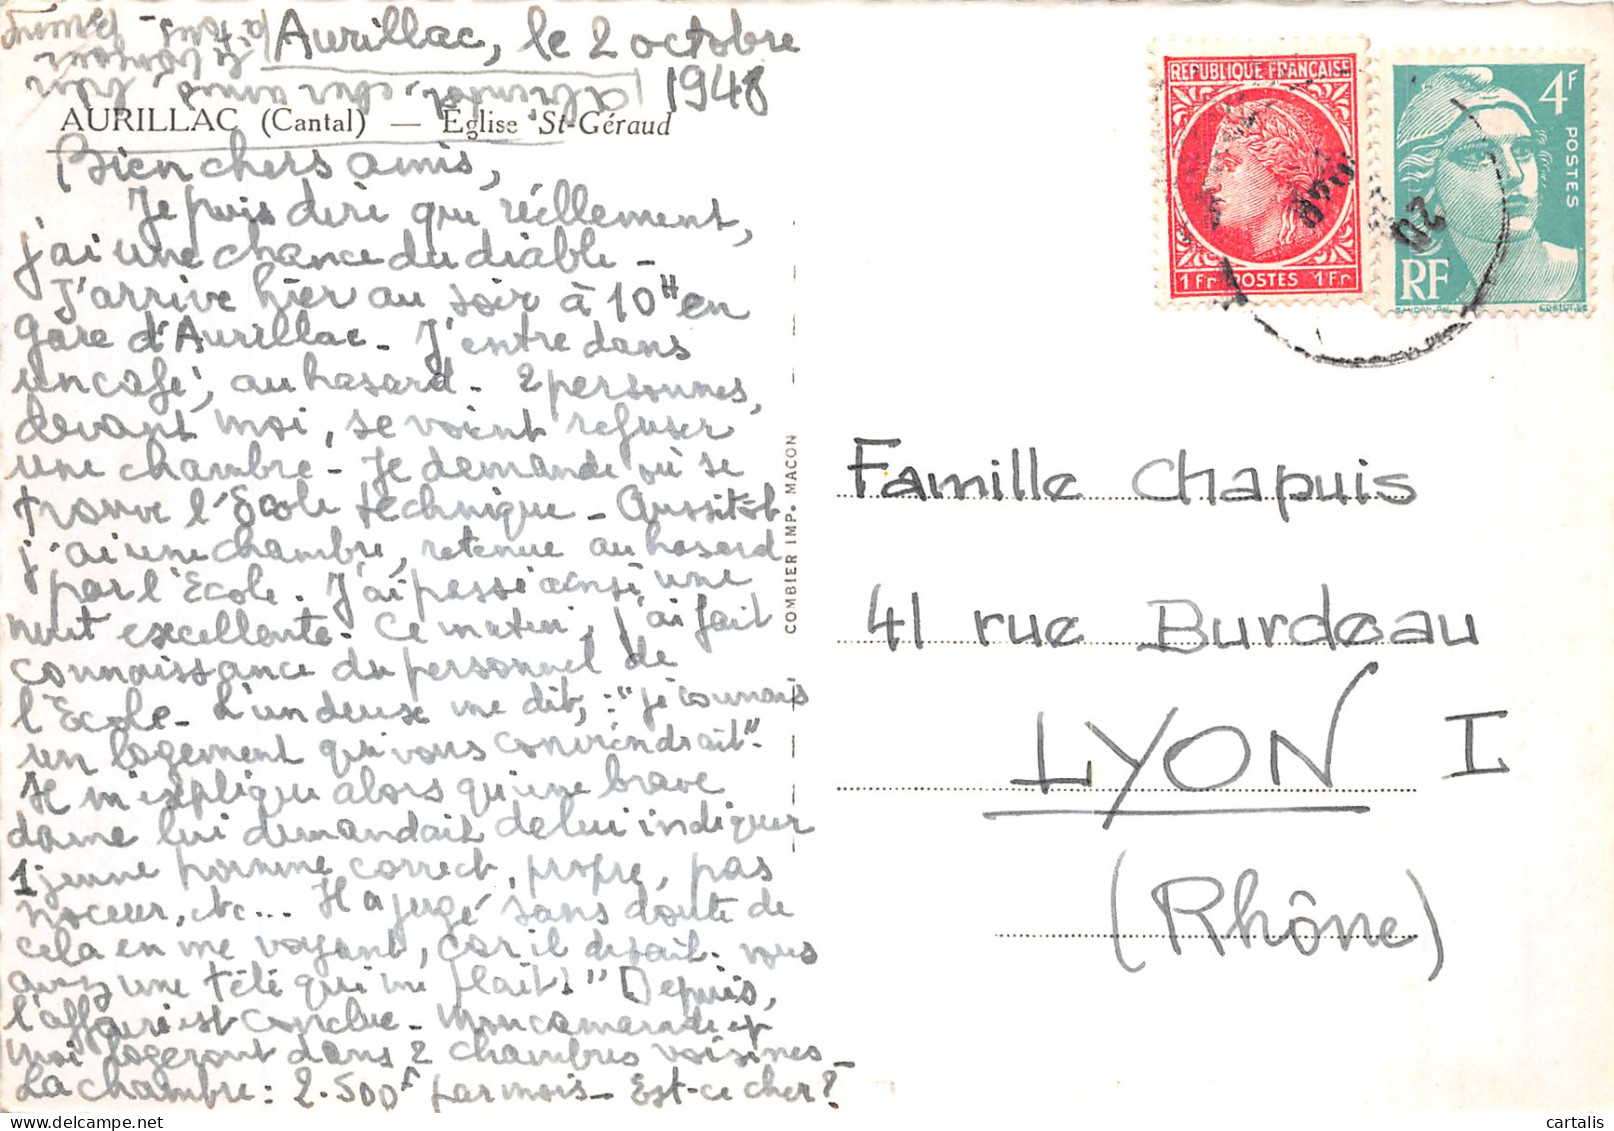 Aurillac, le 2 octobre
1948
AURILLAC (Cantal) — Église St-Géraud
Bien chers amis,
Je puis dire que réellement,
j'ai une chance du diable -
J'arrive hier au soir à 10H en
gare d'Aurillac - J'entre dans
un café, au hasard - 2 personnes,
devant moi, se voient refuser
une chambre - Je demande où se
trouve l'École technique - Aussitôt
j'ai une chambre, retenue au hasard
par l'École. J'ai passé ainsi une
nuit excellente. Ce matin, j'ai fait
connaissance du personnel de
l'École - L'un deux me dit, : "je connais
un logement qui vous conviendrait" -
Il m'explique alors qu'une brave
dame lui demandait de lui indiquer
1 jeune homme correct, propre, pas
noceur, etc... Il a jugé sans doute de
cela en me voyant, car il disait. vous
avez une tête qui me plait!" Depuis,
l'affaire est conclue - Mon camarade et
moi logeront dans 2 chambres voisines -
La chambre : 2.500F par mois - Est-ce cher?
A bientôt, cher amis, bien
le bonjour
à tous -
COMBIER IMP. MACON
REPUBLIQUE FRANÇAISE
1 Fr POSTES 1 Fr
4F
POSTES
RF
GANDON
20
Famille Chapuis
41 rue Burdeau
LYON I
(Rhône)
cartalis